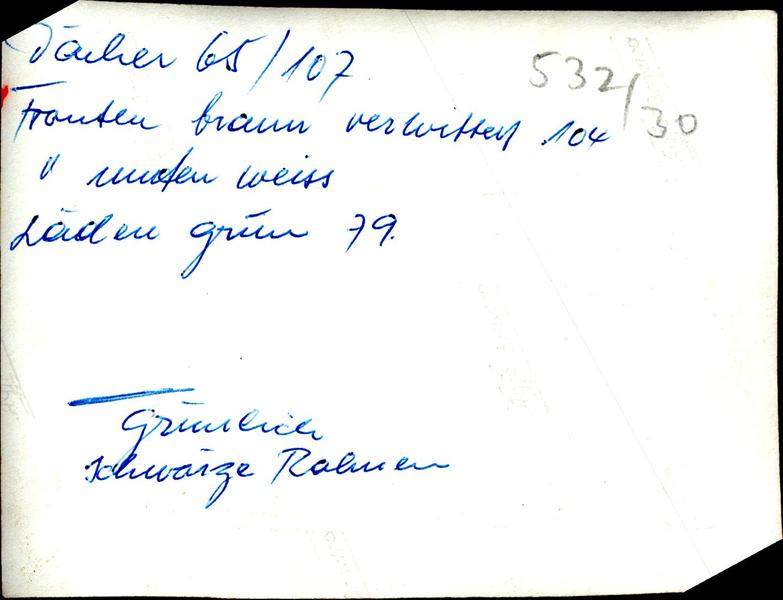 Dächer 65/107
532/30
Fronten braun verwittert 104
" unten weiss
Läden grün 79.
Grünlich
schwarze Rahmen